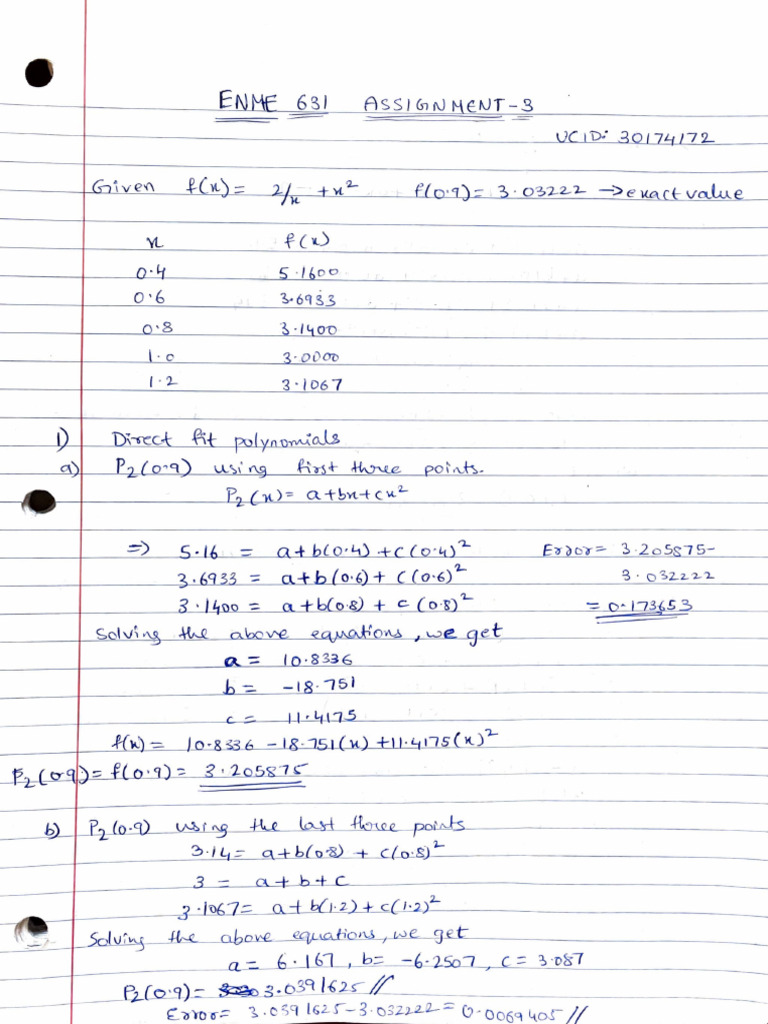 ENME 631 ASSIGNMENT-3
UCID: 30174172
Given f(x) = 2/x + x² f(0.9) = 3.03222 → exact value
x f(x)
0.4 5.1600
0.6 3.6933
0.8 3.1400
1.0 3.0000
1.2 3.1067
1) Direct fit polynomials
a) P₂(0.9) using first three points.
P₂(x) = a+bx+cx²
⇒ 5.16 = a+b(0.4)+c(0.4)² Error = 3.205875-
3.6933 = a+b(0.6)+c(0.6)² 3.032222
3.1400 = a+b(0.8)+c(0.8)² = 0.173653
Solving the above equations, we get
a = 10.8336
b = -18.751
c = 11.4175
f(x) = 10.8336 -18.751(x) +11.4175(x)²
P₂(0.9) = f(0.9) = 3.205875
b) P₂(0.9) using the last three points
3.14 = a+b(0.8) + c(0.8)²
3 = a+b+c
3.1067 = a+b(1.2)+c(1.2)²
Solving the above equations, we get
a = 6.167, b = -6.2507, c = 3.087
P₂(0.9) = 3.0391625 //
Error = 3.0391625-3.032222 = 0.0069405 //